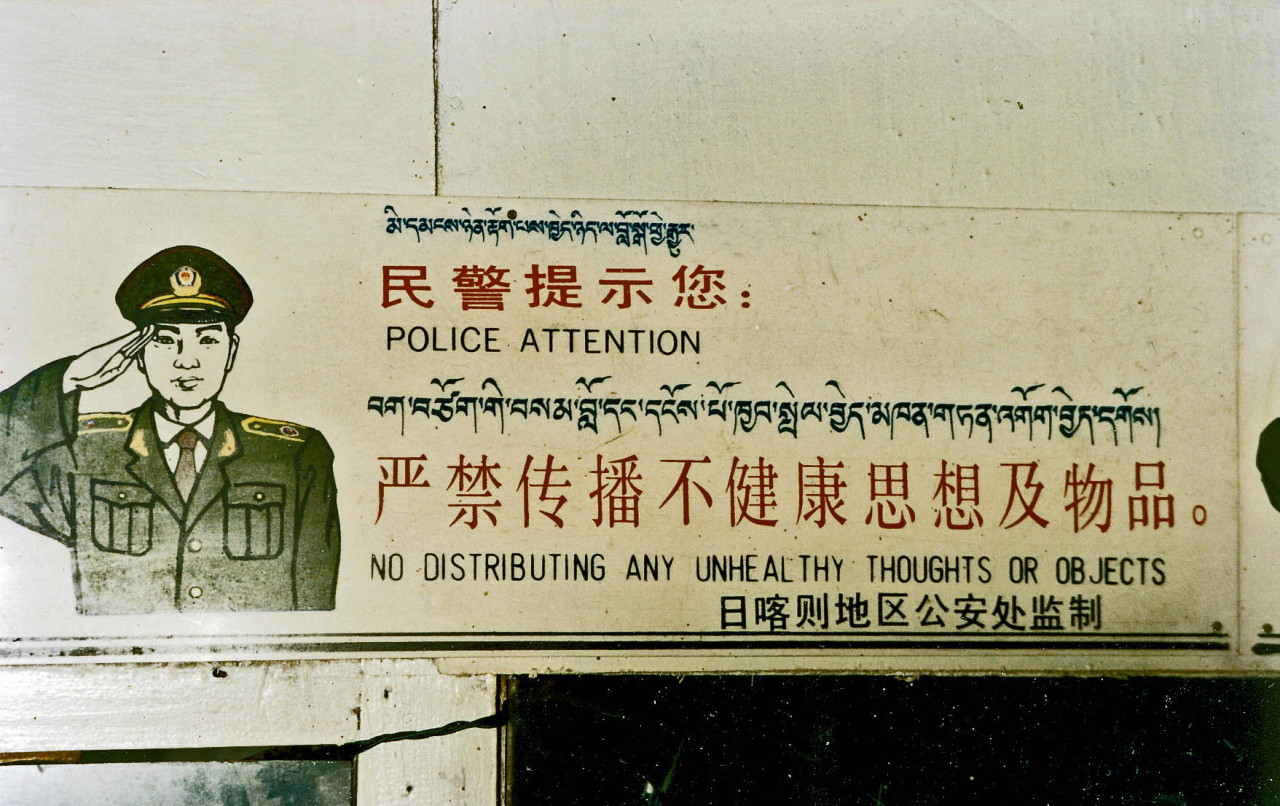 མི་དམངས་ཉེན་རྟོག་པས་ཁྱེད་ཉིད་ལ་བློ་སྒོ་ཕྱེ་རྒྱུར་
民警提示您：
POLICE ATTENTION
བག་བཙོག་གི་བསམ་བློ་དང་དངོས་པོ་ཁྱབ་སྤེལ་བྱེད་མཁན་གཏན་འགོག་བྱེད་དགོས།
严禁传播不健康思想及物品。
NO DISTRIBUTING ANY UNHEALTHY THOUGHTS OR OBJECTS
日喀则地区公安处监制